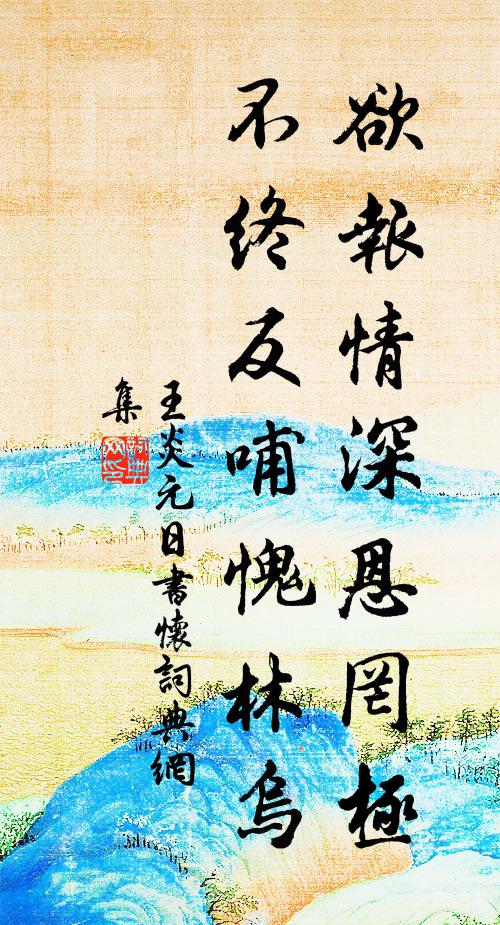 欲報情深恩罔極
不終反哺愧林烏
王炎元日書懷詞典網
集